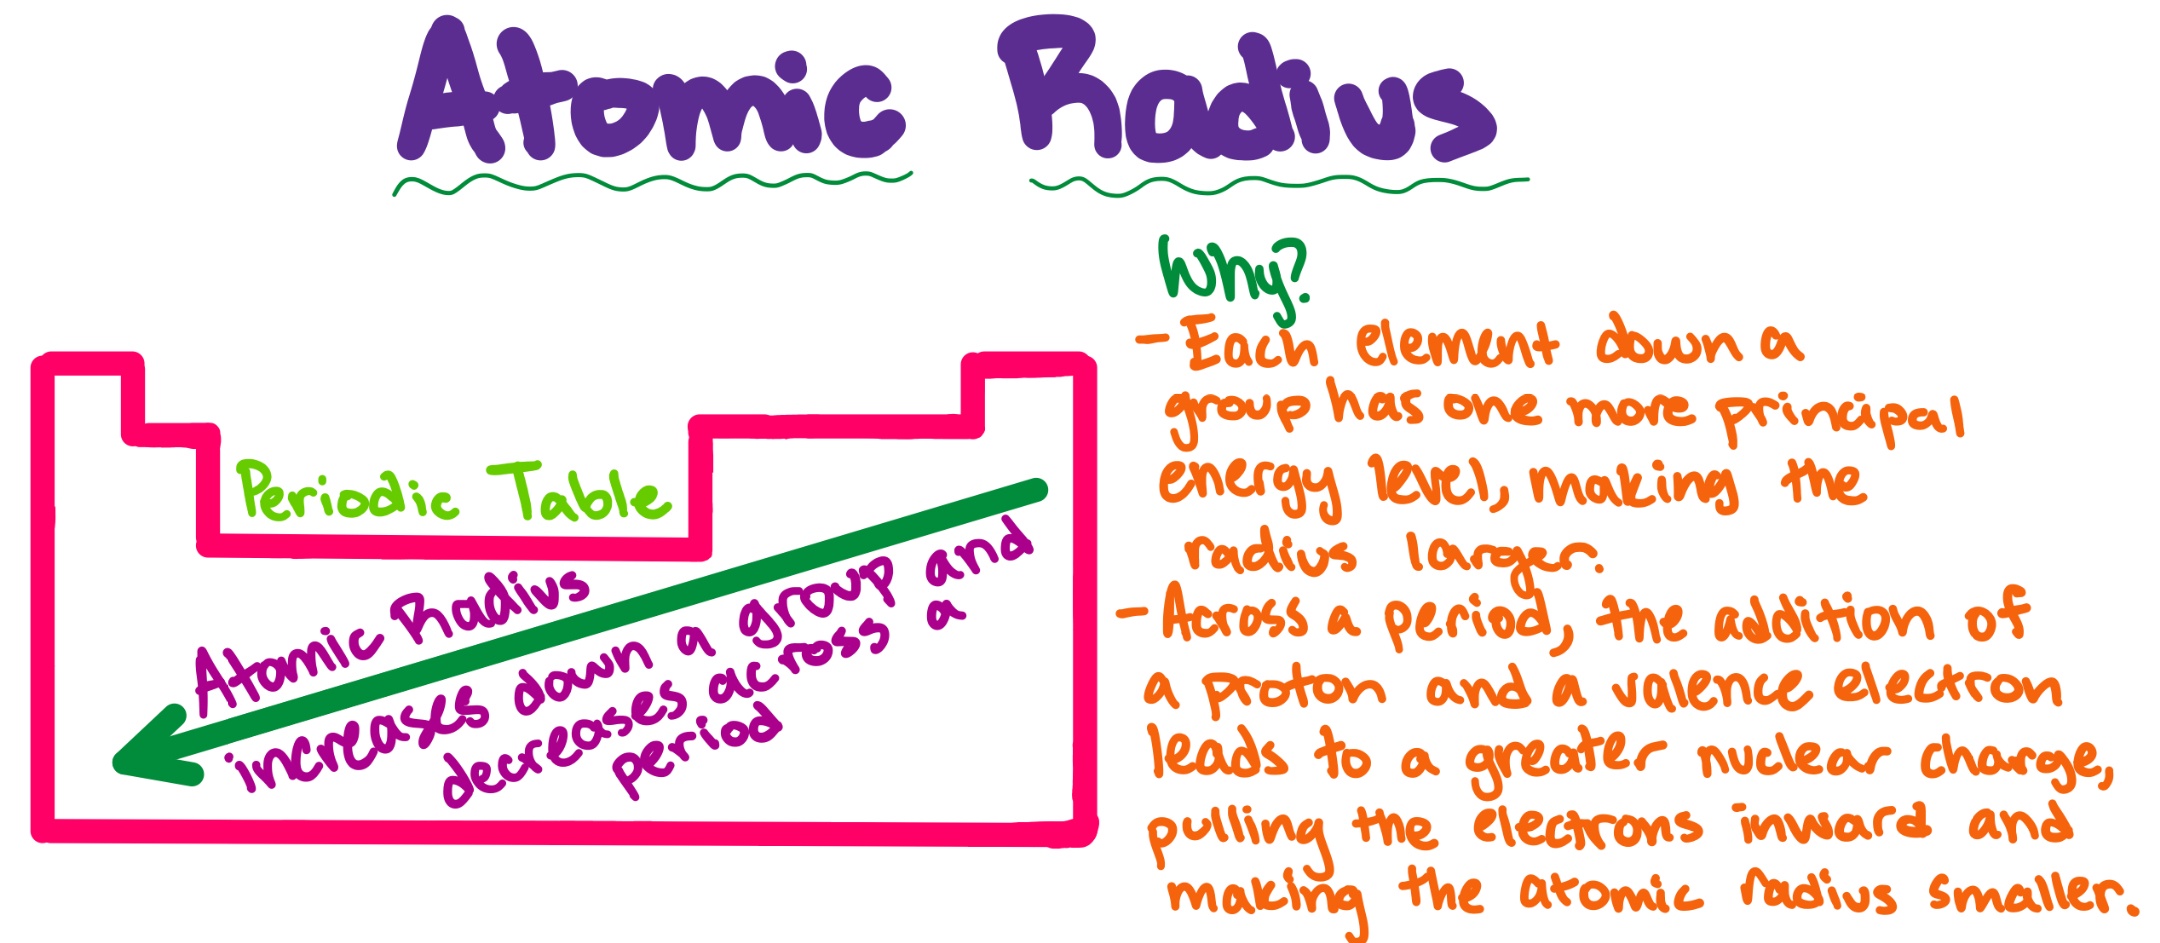 Atomic Radius
Periodic Table
Atomic Radius
increases down a group and
decreases across a
period
Why?
- Each element down a
group has one more principal
energy level, making the
radius larger.
- Across a period, the addition of
a proton and a valence electron
leads to a greater nuclear charge,
pulling the electrons inward and
making the atomic radius smaller.